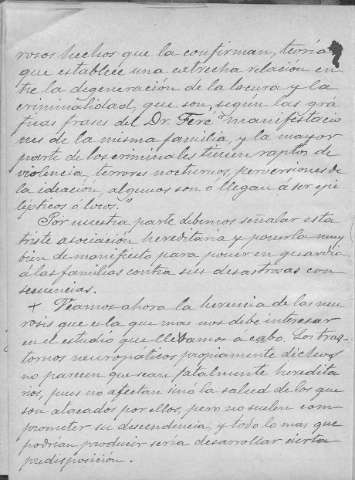 rosos hechos que la confirman, teoría
que establece una estrecha relación en-
tre la degeneración de la locura y la
criminalidad, que son, segun las grá-
ficas frases del Dr. Feré "manifestacio
nes de la misma familia, y la mayor
parte de los criminales tienen raptos de
violencia, terrores nocturnos, perversiones de
la ideación, algunos son ó llegan á ser epi
lépticos ó locos."
Por nuestra parte debemos señalar esta
triste asociación hereditaria y ponerla muy
bien de manifiesto para poner en guardia
á las familias contra sus desastrosas con
secuencias.
+ Veamos ahora la herencia de las neu
rosis que es la que mas nos debe interesar
en el estudio que llevamos a cabo. Los tras
tornos neuropáticos propiamente dichos,
no parecen que sean fatalmente heredita
rios, pues no afectan sinó la salud de los que
son atacados por ellos, pero no suelen com
prometer su descendencia, y todo lo mas que
podrían producir sería desarrollar cierta
predisposición.